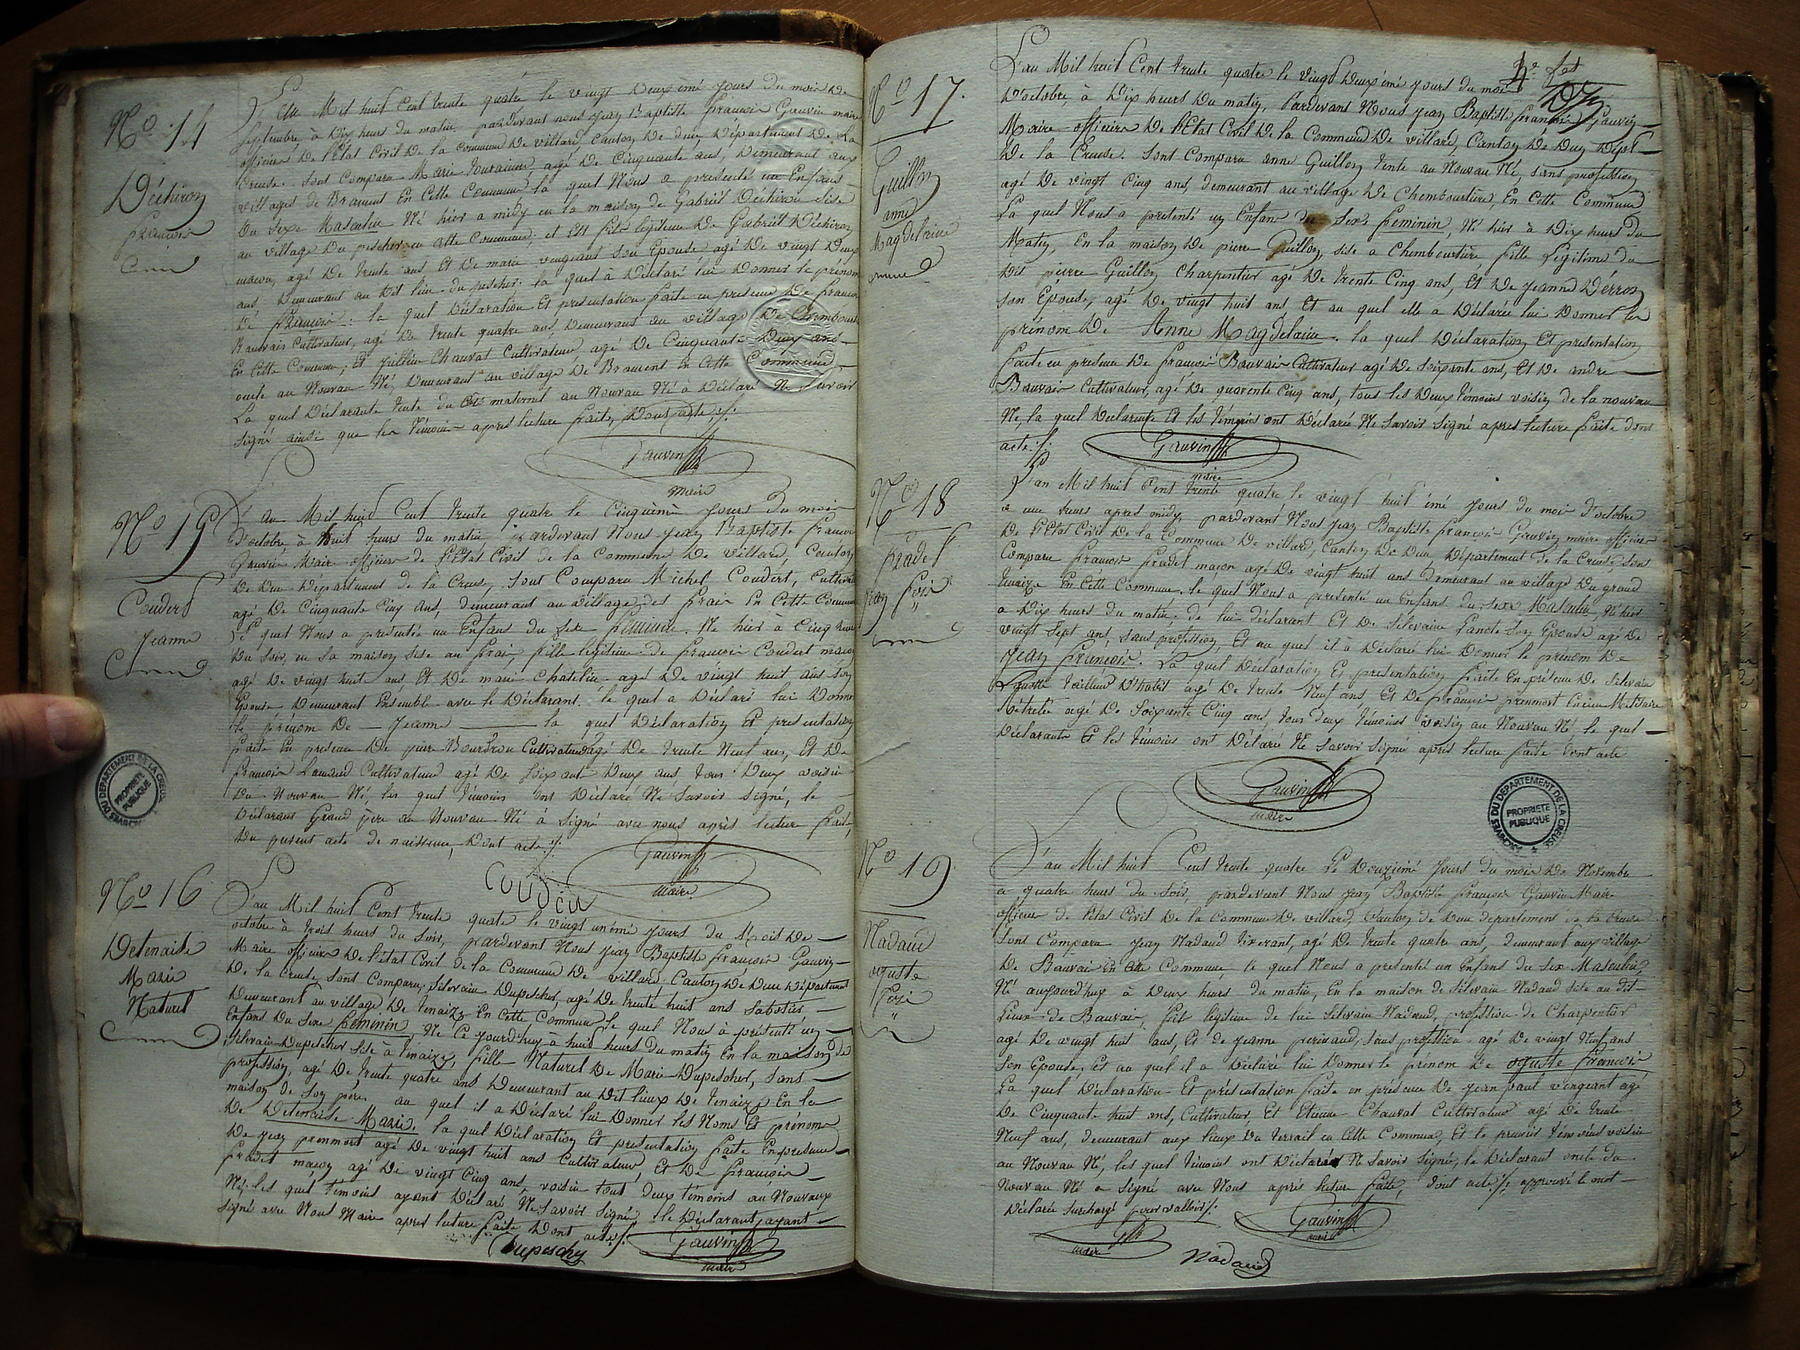 No 14
Déchiron
françois
L'an Mil huit Cent trente quatre le vingt Deuxiémé jours du mois De
Septembre, à Dix heurs du matin, pardevant nous jean Baptiste francois Gauvin maire
officier De l'Etat Civil De la commune De villard, Canton De Dun, Département De La
Creuse. Sont Compara Marie touraine, agé De Cinquante ans, Demeurant au
village De Brament En Cette Commune la quel Nous a presenté un Enfans
Du Sexe Masculin Né hier a midy en la maison De Gabriel Déchiron Sise
au village Du pescher en Cette Commune, et Est fils légitime De Gabriel Déchiron,
macon, agé De trente ans Et De marie vengeant son Epouse agé De vingt Deux
ans, Demeurant au Dit lieu du pescher. la quel à Déclaré lui Donner le prénom
De françois. la quel Déclaration Et presentation faite en presence De francois
Bauvais Cultivateur, agé De trente quatre ans, Demeurant au village De Chembourt
En Cette Commune; Et Chauvat Cultivateur, agé De Cinquante Deux ans
oncle au Nouveau Né, Demeurant au village De Brament En Cette Commune
La quel Déclarante tente du Coté maternel au Nouveau Né à Déclaré Ne Savoir
Signé ainsi que les témoins apres lecture faite, Dont acte ./.
Gauvin
maire
No 15
Coudert
Jeanne
L'an Mil huit Cent trente quatre le Cinquiemé jours Du mois
D'octobre à huit heurs du matin pardevant Nous jean Baptiste francois
Gauvin Maire officier De l'Etat Civil De la Commune De villard, Canton
De Dun Département De la Creuse, Sont Compara Michel Coudert, Cultivateur
agé De Cinquante Cinq ans, demeurant au village des frais En Cette Commune
le quel Nous a présentée un Enfant Du Sexe feminin. Né hier à Cinq heurs
Du Soir, en Sa maison sise au frai, fille légitime De francois Coudert macon
agé De vingt huit ans, Et De marie Chatelin agé De vingt huit ans son
Epouse Demeurant Ensemble avec le Déclarant. le quel a Déclaré lui Donner
le prénom De Jeanne la quel Déclaration Et presentation
faite En présence De pierre Bourdron Cultivateur agé De trente Neuf ans, Et De
francois Lamaud Cultivateur agé De Soixante Deux ans tous Deux voisin
Du Nouveau Né, les quel témoins ont Déclaré Ne Savoir Signé, le
Déclarant Grand père au Nouveau Né à Signé avec nous après lecture faite
Du present acte De naissence, Dont acte ./.
Coudert
Gauvin
maire
ARCHIVES DU DEPARTEMENT DE LA CREUSE
PROPRIETE
PUBLIQUE
No 16
Detenaise
Marie
Naturel
L'an Mil huit Cent trente quatre le vingt uniémé jours Du Mois De
octobre à trois heurs du Soir, pardevant Nous jean Baptiste François Gauvin
Maire officier De l'état Civil de la Commune De villard Canton De Dun Départment
De la Creuse, Sont Compara, Silevain Dupescher, agé De trente huit ans Sabotier,
Demeurant au village De tenaize En Cette Commune le quel Nous à présenté un
Enfans Du Sexe feminin, Né Ce jourd'huy à huit heurs Du matin En la maison de
Silevain Dupescher sise à tenaize, fille Naturel De Marie Dupescher, Sans
profession, agé De trente quatre ans Demeurant au Dit lieux De tenaize En la
maison de Son père. au quel il a Déclaré lui Donner les Noms Et prénom
De Detenaise Marie, la quel Déclaration Et presentation faite En presence
De jean premmort agé De vingt huit ans Cultivateur, Et De francois
fradet macon agé De vingt Cinq ans, voisin tous Deux témoins au Nouveau
Né; les quel témoins ayant Déclaré Ne Savoir Signé ; le Déclarant ayant
Signé avec Nous Maire après lecture faite Dont acte ./.
Dupescher
Gauvin
maire
No 17.
Guillon
anne
Magdelaine
4e
L'an Mil huit Cent trente quatre le vingt Deuxiémé jours du mois
D'octobre, à Dix heurs Du matin, Pardevant Nous jean Baptiste francois Gauvin
Maire officier De l'Etat Civil De la Commune De villard, Canton De Dun Dept
De la Creuse. Sont Compara anne Guillon tente au Nouveau Né, sans profession,
agé De vingt Cinq ans, demeurant au village De Chembourtire, En Cette Commune
La quel Nous a présenté un Enfant du Sexe feminin, Né hier à Dix heurs du
Matin, En la maison De pierre Guillon, sise a Chembourtire fille Légitime du
Dit pierre Guillon Charpentier agé De trente Cinq ans, Et De jeanne Dérron
son Epouse, agé De vingt huit ans, Et au quel elle a Déclarée lui Donner le
prénom De Anne Magdelaine. la quel Déclaration Et presentation
faite en presence De francois Bauvais Cultivateur agé De Soixante ans, Et De andre
Bauvais Cultivateur, agé De quarente Cinq ans, tous les Deux témoins voisin de la nouveau
Né, la quel Déclarente Et les témoins ont Déclaré Ne Savoir Signé apres lecture faite dont
acte ./.
Gauvin
maire
No 18
fradet
Jean frois
L'an Mil huit Cent trente quatre le vingt huit émé jours du mois d'octobre
a une heurs apres midy, pardevant Nous jean Baptiste francois Gauvin maire officier
De l'Etat Civil De la Commune De villard, Canton De Dun, Département De la Creuse Sont
Compara francois fradet maçon agé De vingt huit ans Demeurant au village Du grand
tenaize En Cette Commune. le quel Nous a présenté un Enfans du Sexe Masculin, Né hier
a Dix heurs du matin, de lui déclarant Et De Silevaine Son Epouse agé De
vingt Sept ans, Sans profession, Et au quel il à Déclaré lui Donner le prénom De
Jean françois. La quel Déclaration Et présentation faite En présence De Silevain
tailleur D'habit agé De trente Neuf ans Et De francois premmort Militaire
Retreté agé De Soixante Cinq ans, tous Deux témoins voisin au Nouveau Né, le quel
Déclarante Et les témoins ont Déclaré Ne Savoir Signé apres lecture faite Dont acte
Gauvin
maire
ARCHIVES DU DEPARTEMENT DE LA CREUSE
PROPRIETE
PUBLIQUE
No 19
Nadaud
oguste
frois
L'an Mil huit Cent trente quatre le Douziémé jours du mois De Novembre
a quatre heurs du Soir, pardevant Nous jean Baptiste francois Gauvin Maire
officier De l'état Civil De la Commune De villard, Canton, de Dun departement de la Creuse
Sont Compara jean Nadaud tixerant, agé De trente quatre ans, demeurant aux village
De Bauvais En Cette Commune, le quel Nous a présenté un Enfans du Sex Masculin,
Né aujourd'huy à Deux heurs du matin, En la maison de Silevain Nadaud sise au dit
lieux De Bauvais, fils légitime de lui Silevain Nadaud, proffession de Charpentier
agé De vingt huit ans, Et de jeanne perivaud, Sans proffetion agé De vingt Neuf ans
Son Epouse, Et au quel il a Déclaré lui Donner le prénom De oguste françois
La quel Déclaration Et présentation faite en présence De jean paul vengeant agé
De Cinquante huit ans, Cultivateur, Et Etienne Chauvat Cultivateur agé De trente
Neuf ans, demeurant aux lieux Du terrail en Cette Commune, Et le premier témoins voisin
au Nouveau Né, les quel témoins ont Déclaré Ne Savoir Signé, le Déclarant oncle du
Nouveau Né a Signé avec Nous après lecture faite, dont acte ./. approuvé le mot
Déclaré Surchargé pour valloir ./.
maire
Gauvin
maire
Nadaud